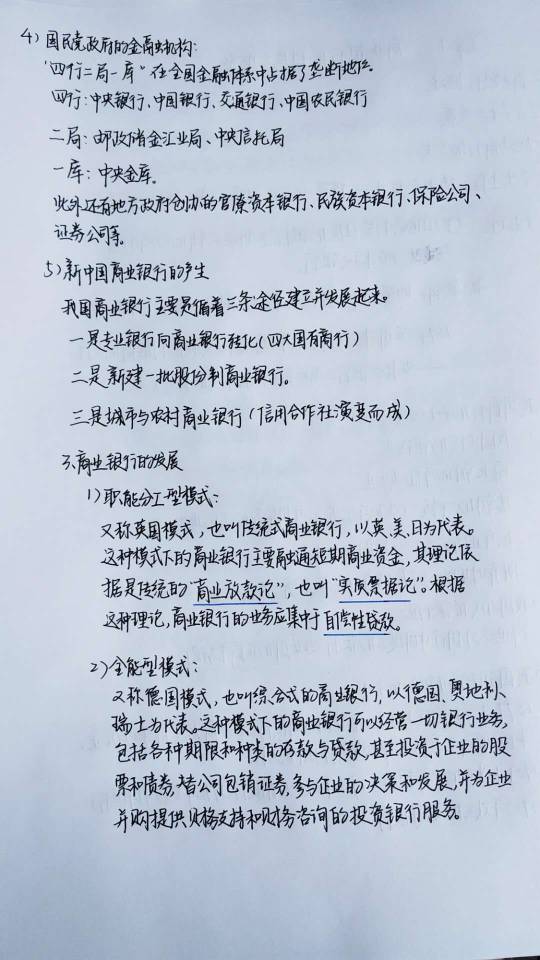 4）国民党政府的金融机构：
“四行二局一库”在全国金融体系中占据了垄断地位。
四行：中央银行、中国银行、交通银行、中国农民银行
二局：邮政储金汇业局、中央信托局
一库：中央金库.
此外还有地方政府创办的官僚资本银行、民族资本银行、保险公司、
证券公司等。
5）新中国商业银行的产生
我国商业银行主要是循着三条途径建立并发展起来。
一是专业银行向商业银行转化（四大国有商行）
二是新建一批股份制商业银行。
三是城市与农村商业银行（信用合作社演变而成）
3、商业银行的发展
1）职能分工型模式：
又称英国模式，也叫传统式商业银行，以英、美、日为代表。
这种模式下的商业银行主要融通短期商业资金，其理论依
据是传统的“商业放款论”，也叫“实质票据论”。根据
这种理论，商业银行的业务应集中于自偿性贷款。
2）全能型模式：
又称德国模式，也叫综合式的商业银行，以德国、奥地利、
瑞士为代表。这种模式下的商业银行可以经营一切银行业务，
包括各种期限和种类的存款与贷款，甚至投资于企业的股
票和债券，替公司包销证券，参与企业的决策和发展，并为企业
并购提供财务支持和财务咨询的投资银行服务。